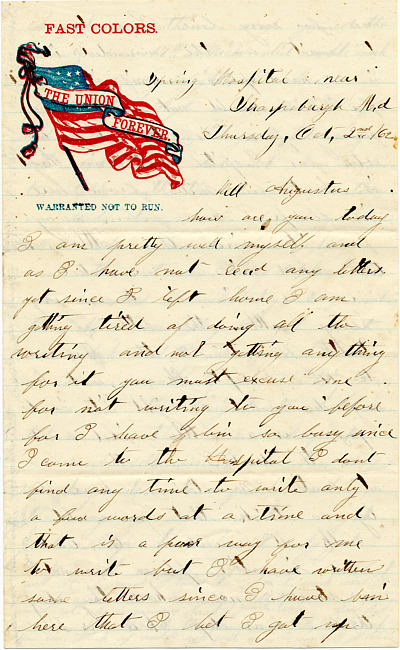 FAST COLORS.
THE UNION
FOREVER.
WARRANTED NOT TO RUN.
Spring Hospital near
Sharpsburgh Md
Thursday, Oct, 2nd /62
Well Augustus
how are you today
I am pretty well myself and
as I have not recd any letters
yet since I left home I am
getting tired of doing all the
writing and not getting any thing
for it you must excuse me
for not writing to you before
for I have bin so busy since
I come to the Hospital I dont
find any time to write only
a few words at a time and
that is a poor way for me
to write but I have written
some letters since I have bin
here that I bet I got